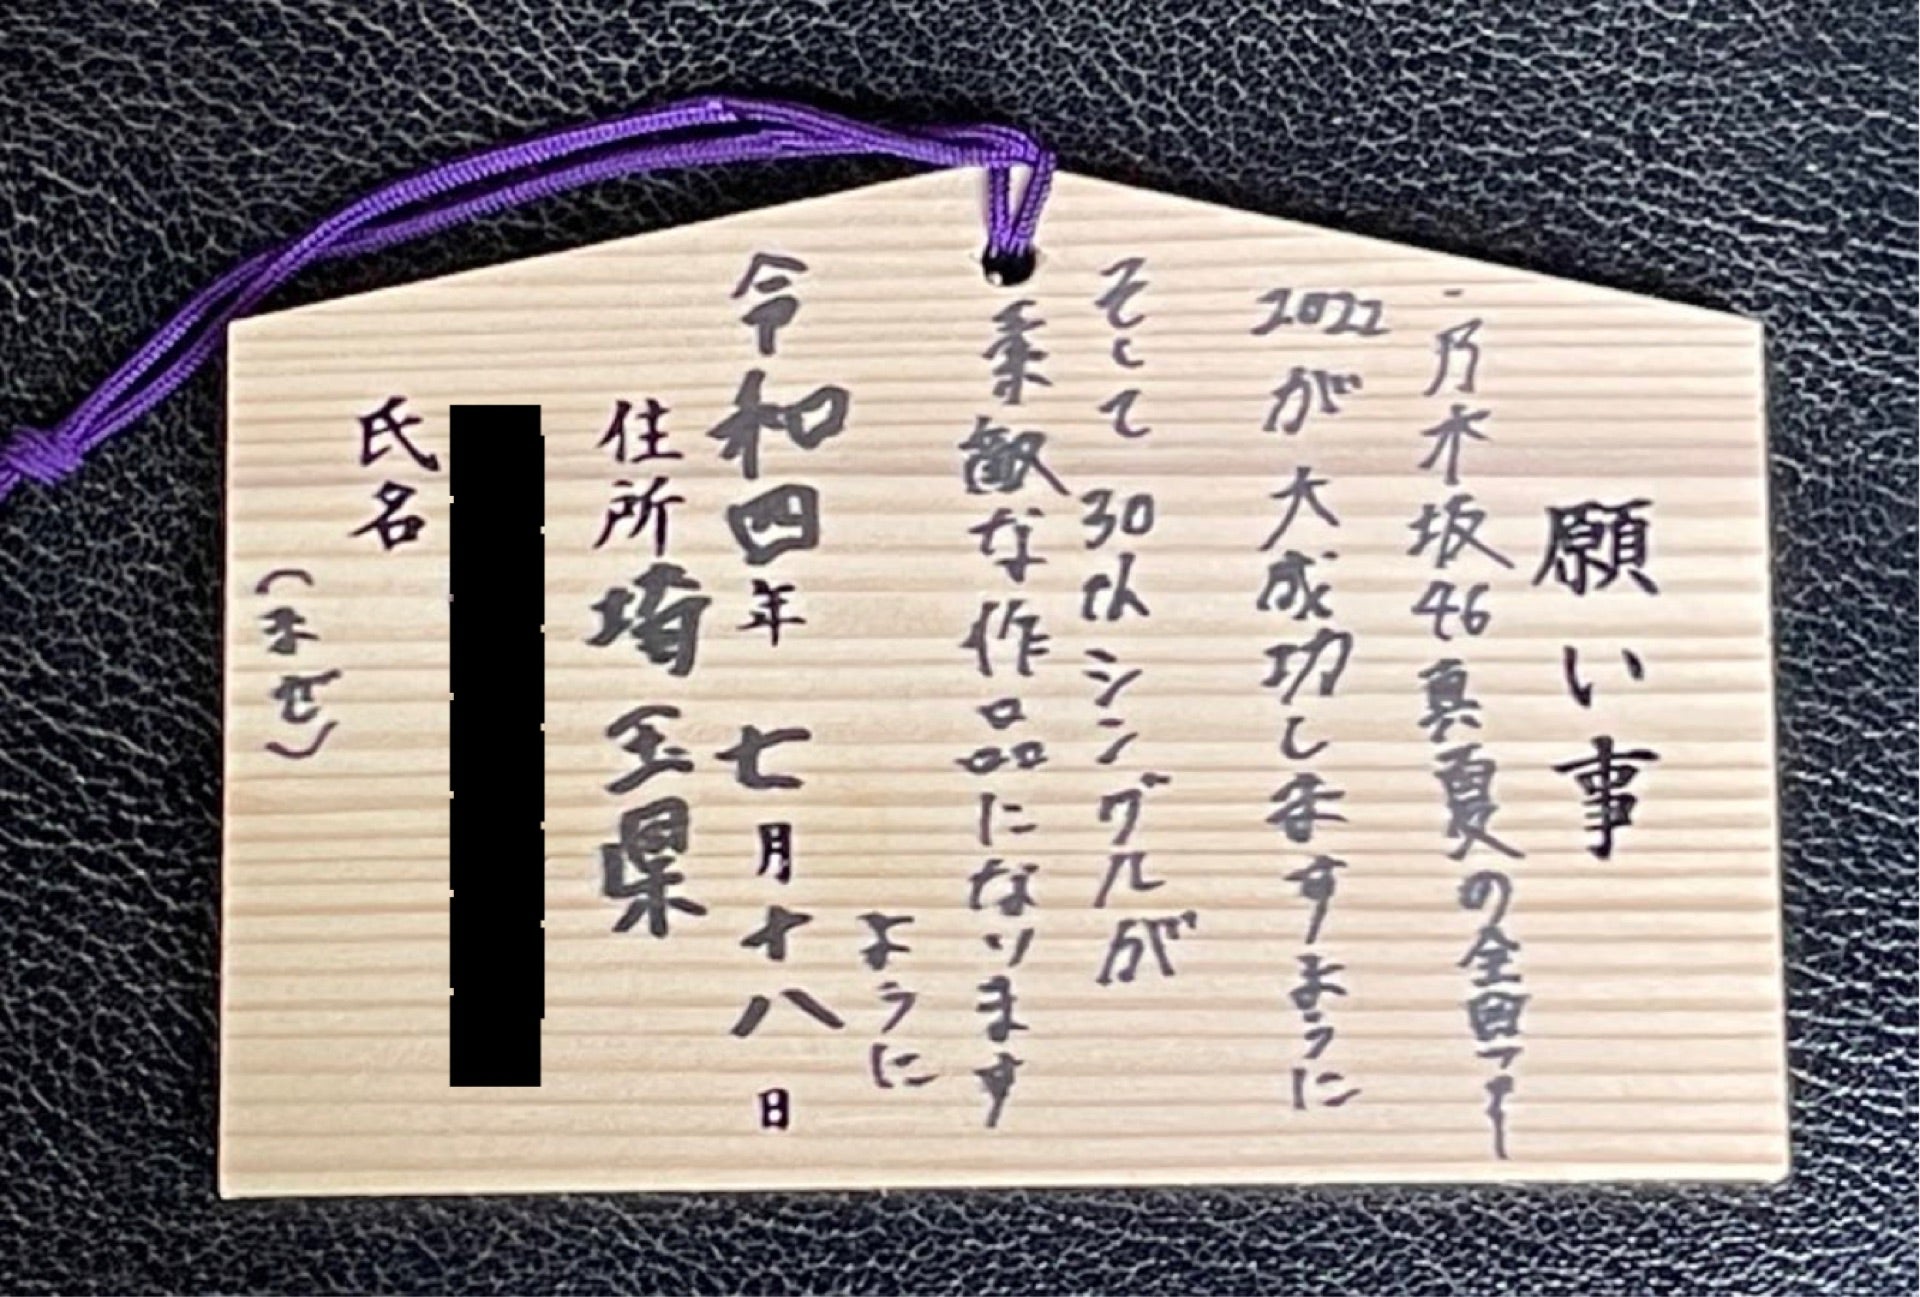 願い事
・乃木坂46真夏の全国ツアー
2022が大成功しますように
そして30thシングルが
素敵な作品になります
ように
令和四年七月十八日
住所埼玉県
氏名
(まぜ)